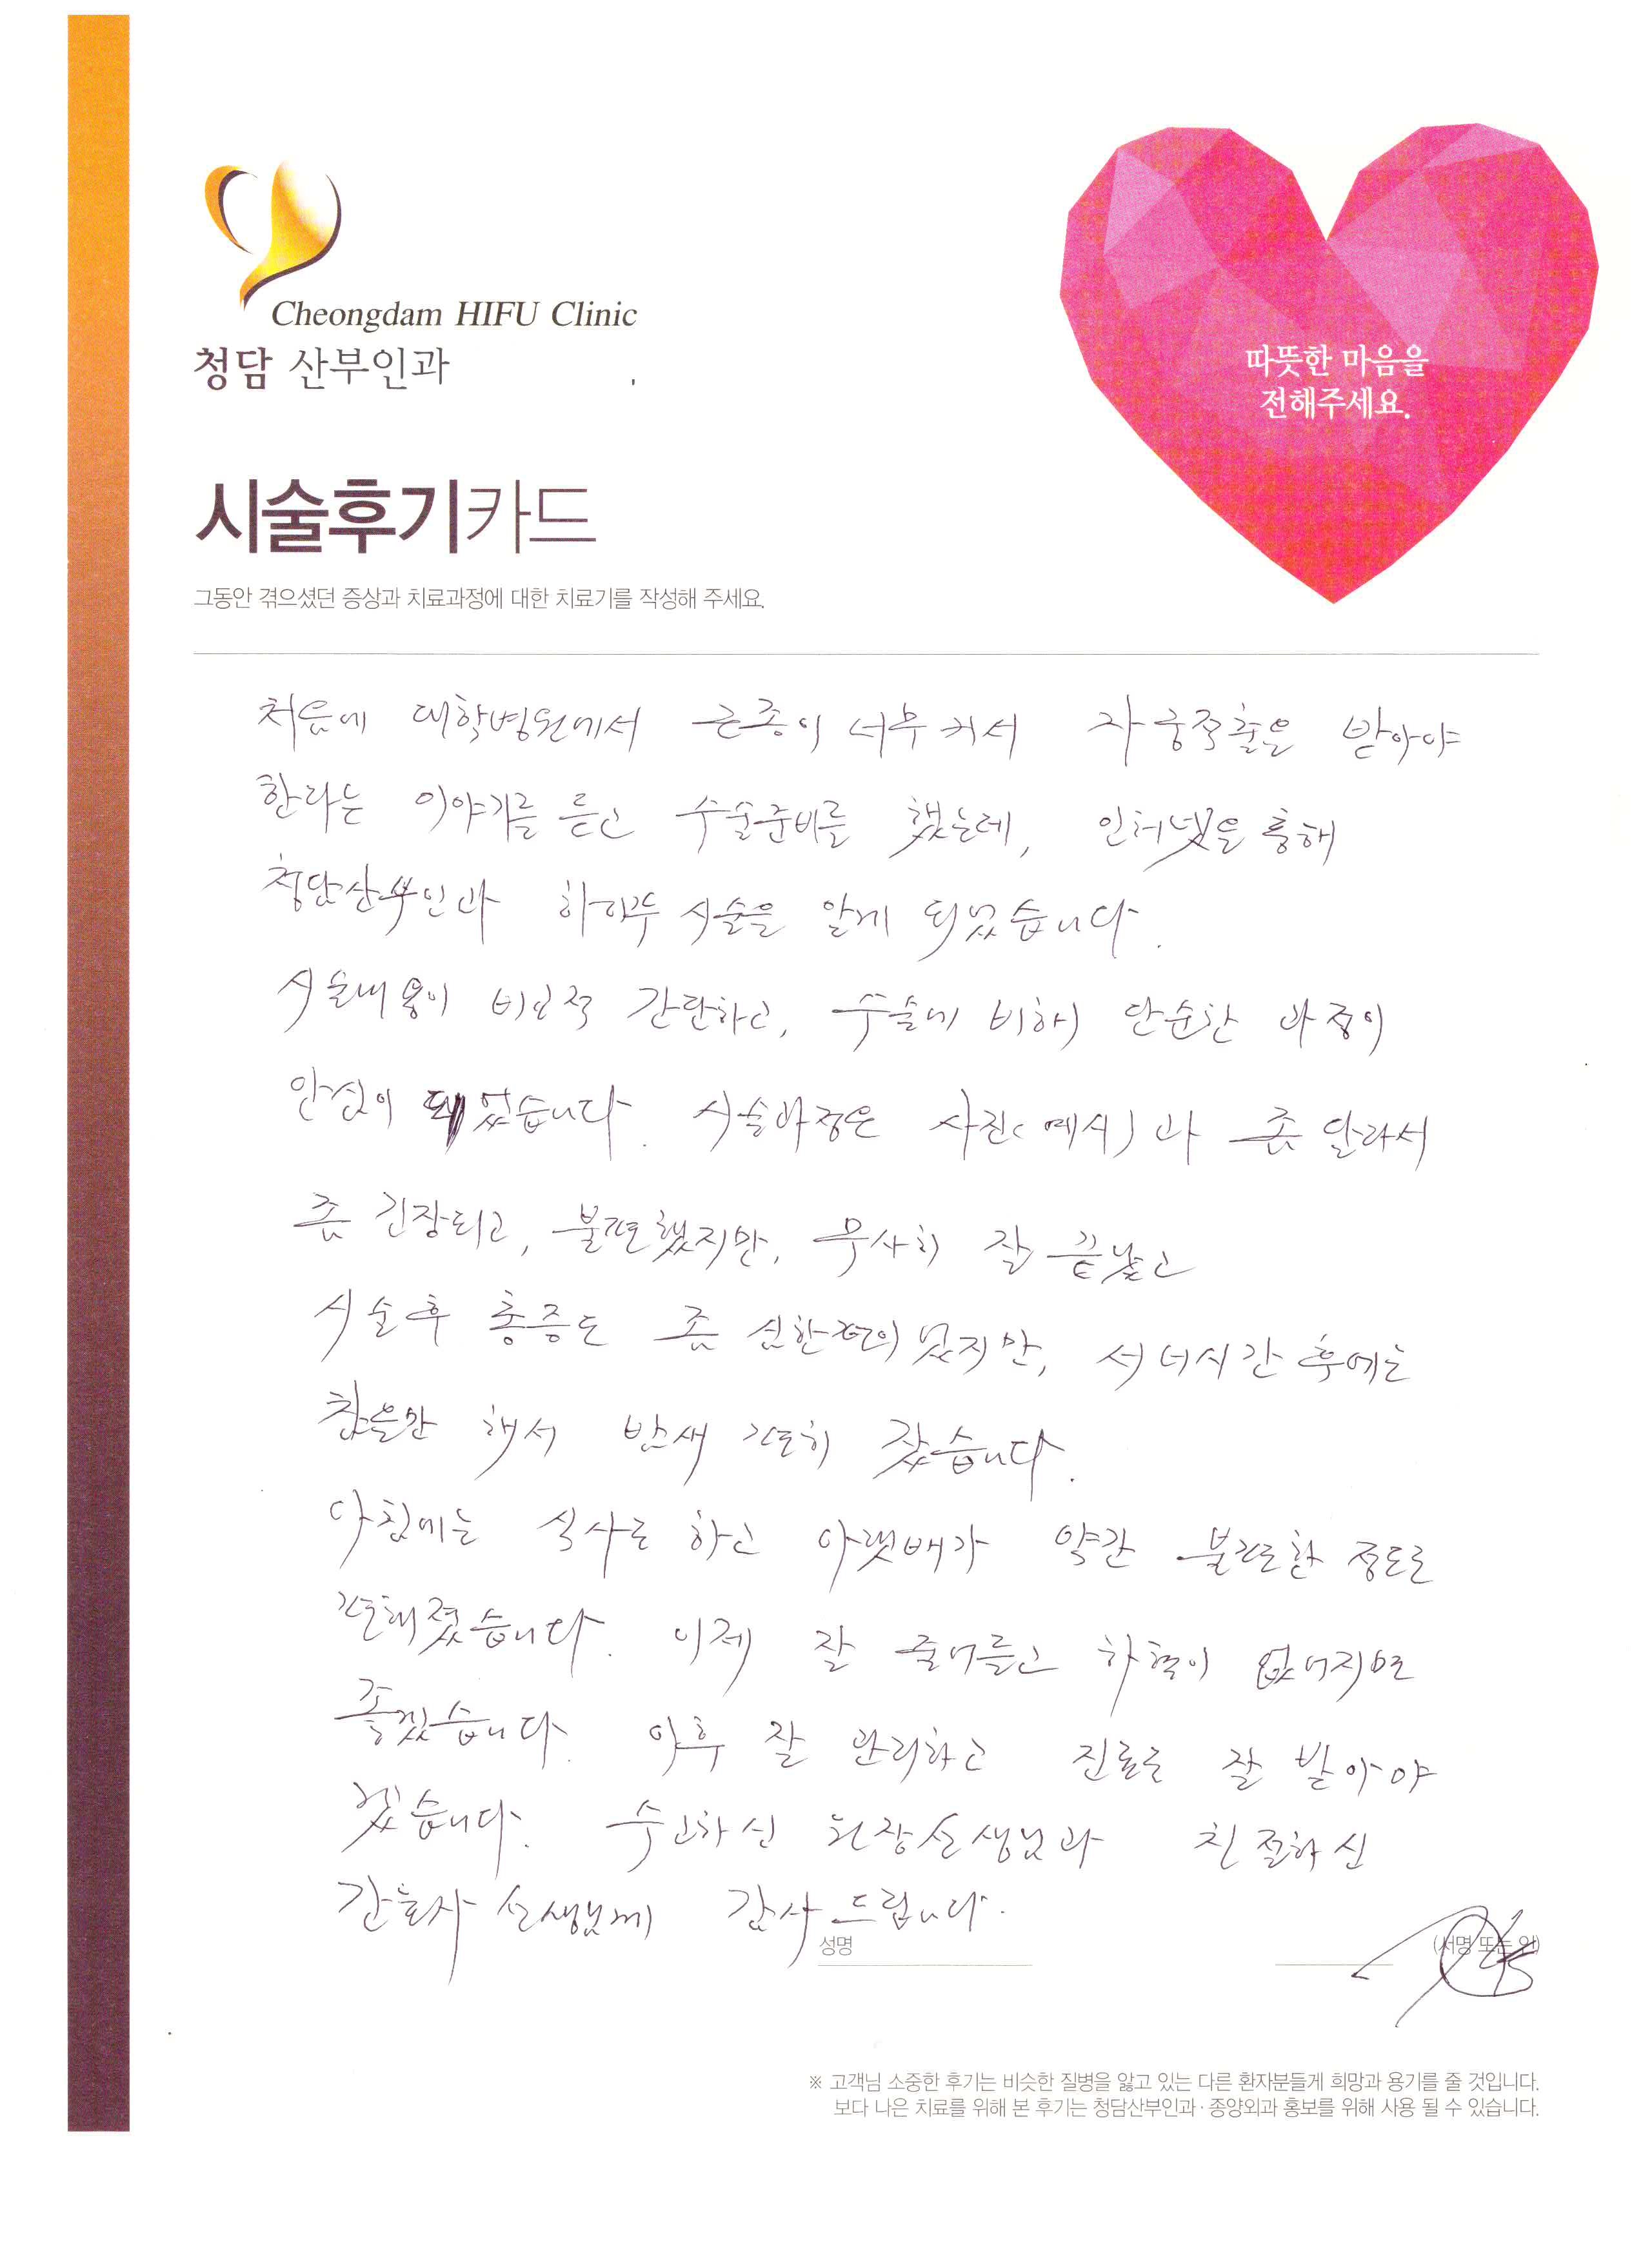 Cheongdam HIFU Clinic
청담 산부인과
따뜻한 마음을
전해주세요.
시술후기카드
그동안 겪으셨던 증상과 치료과정에 대한 치료기를 작성해 주세요.
처음에 대학병원에서 근종이 너무 커서 자궁적출을 받아야
한라는 이야기를 듣고 수술준비를 했는데, 인터넷을 통해
청담산부인과 하이푸 시술을 알게 되었습니다.
시술내용이 비교적 간단하고, 수술에 비해 단순한 과정이
안심이 되었습니다. 시술과정은 사진(예시)과 좀 달라서
좀 긴장되고, 불편했지만, 무사히 잘 끝났고
시술후 통증도 좀 심한편이었지만, 서너시간 후에는
참을만 해서 밤새 편히 잤습니다.
아침에는 식사도 하고 아랫배가 약간 불편한 정도로
편해졌습니다. 이제 잘 줄어들고 하혈이 없어지면
좋겠습니다. 이후 잘 관리하고 진료도 잘 받아야
겠습니다. 수고하신 원장선생님과 친절하신
간호사 선생님께 감사드립니다.
성명 (서명 또는 인)
※ 고객님 소중한 후기는 비슷한 질병을 앓고 있는 다른 환자분들게 희망과 용기를 줄 것입니다.
보다 나은 치료를 위해 본 후기는 청담산부인과·종양외과 홍보를 위해 사용 될 수 있습니다.